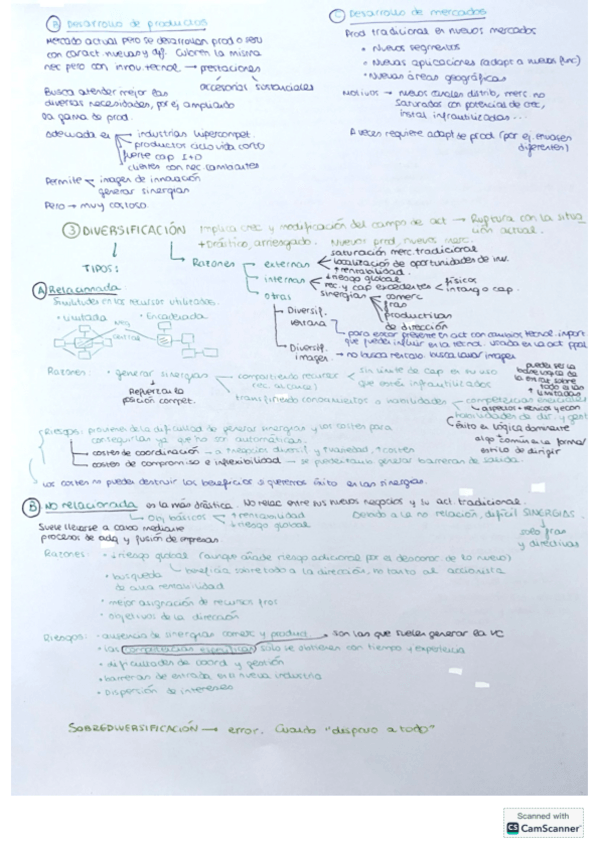 B Desarrollo de productos
Mercado actual pero se desarrollan prod o serv
con caract. nuevas y dif. Cubren la misma
nec pero con innov. tecnol → prestaciones
accesorias sustanciales
Busca atender mejor las
diversas necesidades, por ej ampliando
la gama de prod.
Adecuada en
industrias hipercompet.
productos ciclo vida corto
fuerte cap I+D
clientes con nec cambiantes
Permite
imagen de innovación
generar sinergias
Pero → muy costoso
C Desarrollo de mercados
Prod tradicional en nuevos mercados
• Nuevos segmentos
• Nuevas aplicaciones
• Nuevas áreas geográficas
Motivos → nuevos canales distrib, merc no
saturados con potencias de crec,
instal infrautilizadas...
A veces requiere adapt de prod (por ej. envases
diferentes)
3 DIVERSIFICACIÓN Implica crec y modificación del campo de act → Ruptura con la situa
ción actual.
+ Drástico, arriesgado. Nuevos prod, nuevos merc.
TIPOS:
Razones
externas
saturación merc. tradicional
localización de oportunidades de inv.
internas
↑ rentabilidad.
↓ riesgo global
rec. y cap excedentes
físicos
intang o cap.
otras
sinergias
comerc
fras
productivas
de dirección
Diversif. ventana
para estar presente en act con cambios tecnol. import
que pueda influir en la tecnol. usada en la act ppal
Diversif. imagen
no busca rentab. busca lavar imagen
A Relacionada
Similitudes en los recursos utilizados.
• Limitada
• Encadenada
Neg.
central
Razones: • generar sinergias
compartiendo recursos
sin límite de cap en su uso
que estén infrautilizados
Reforzar la
posición compet.
transfiriendo conocimientos o habilidades
competencias esenciales
aspectos técnicos y econ
habilidades de dir y gest
éxito en lógica dominante
algo común en la forma/
estilo de dirigir
Riesgos: provienen de la dificultad de generar sinergias y los costes para
conseguirlas ya que no son automáticas.
costes de coordinación → a + negocios diversif y + variedad, + costes
costes de compromiso e inflexibilidad → se pueden generar barreras de salida.
Los costes no pueden destruir los beneficios si queremos éxito en las sinergias.
B No relacionada es la más drástica. No relac entre tus nuevos negocios y tu act tradicional.
Obj. básicos
↑ rentabilidad
↓ riesgo global
Debido a la no relación, difícil SINERGIAS.
solo fras
y directivas
Suele llevarse a cabo mediante
procesos de adq y fusión de empresas.
Razones: • ↓ riesgo global (aunque añade riesgo adicional por el desconoc de lo nuevo)
beneficia sobre todo a la dirección, no tanto al accionista
• búsqueda
de alta rentabilidad
• mejor asignación de recursos fros
• objetivos de la dirección
Riesgos: • ausencia de sinergias comerc y product. → son las que suelen generar la VC
• las competencias específicas solo se obtienen con tiempo y experiencia
• dificultades de coord y gestión
• barreras de entrada en la nueva industria
• dispersión de intereses
SOBREDIVERSIFICACIÓN → error. Cuando "disparo a todo"
Scanned with
CS CamScanner